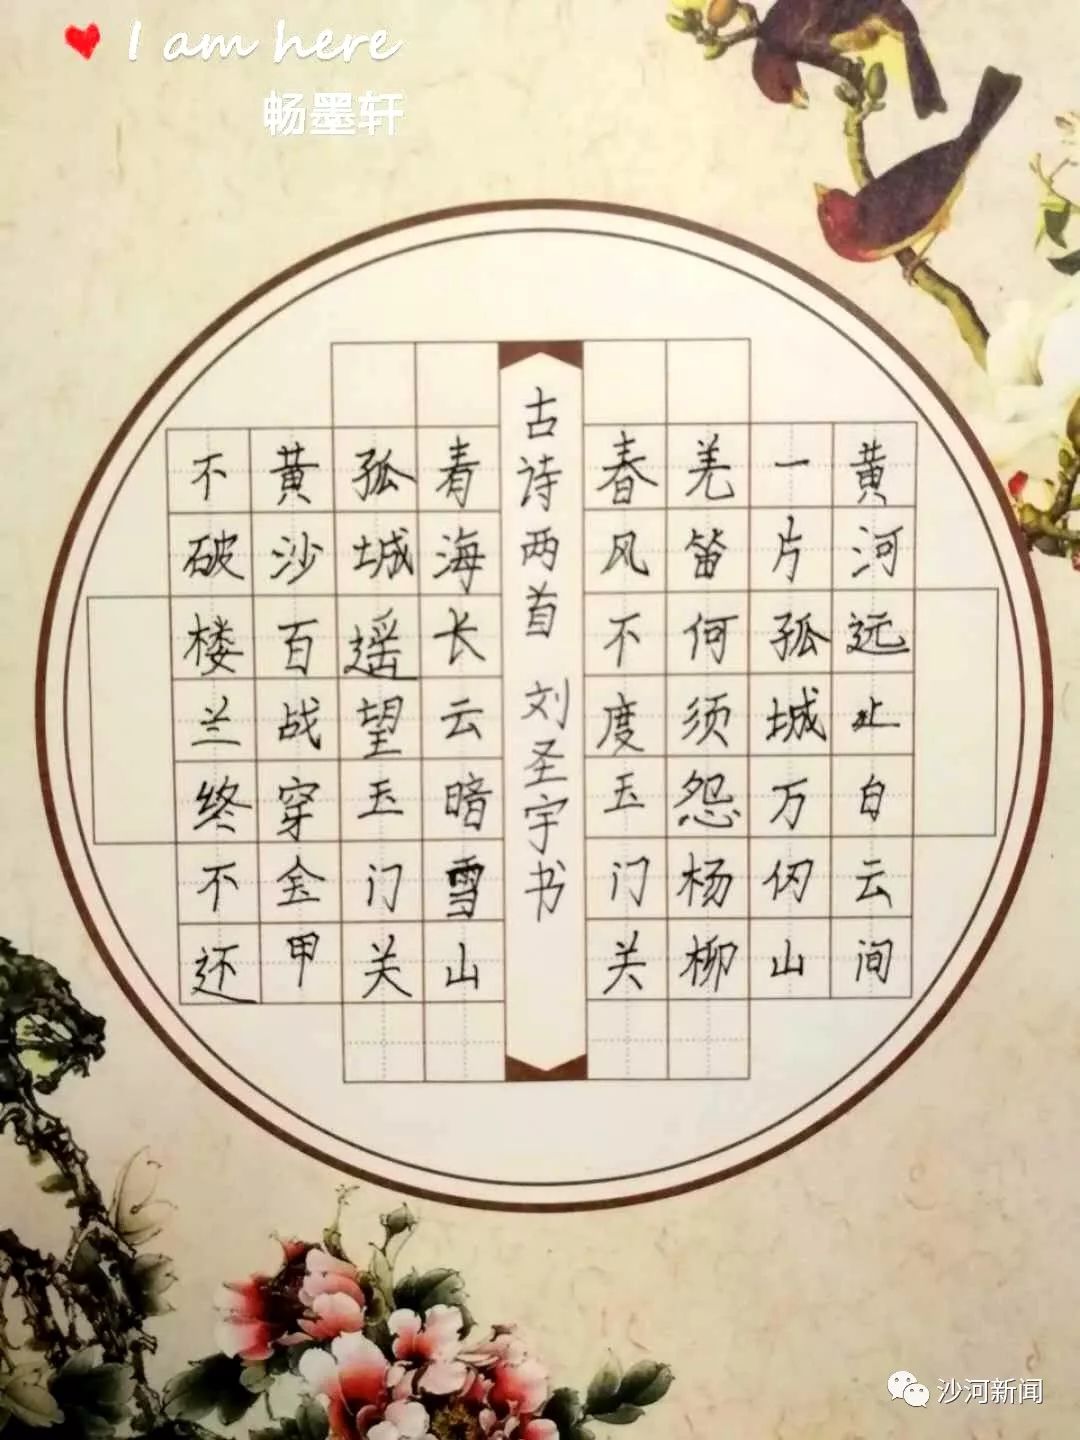 I am here
畅墨轩
黄河远止白云间
一片孤城万仞山
羌笛何须怨杨柳
春风不度玉门关
古诗两首 刘圣宇书
青海长云暗雪山
孤城遥望玉门关
黄沙百战穿金甲
不破楼兰终不还
沙河新闻